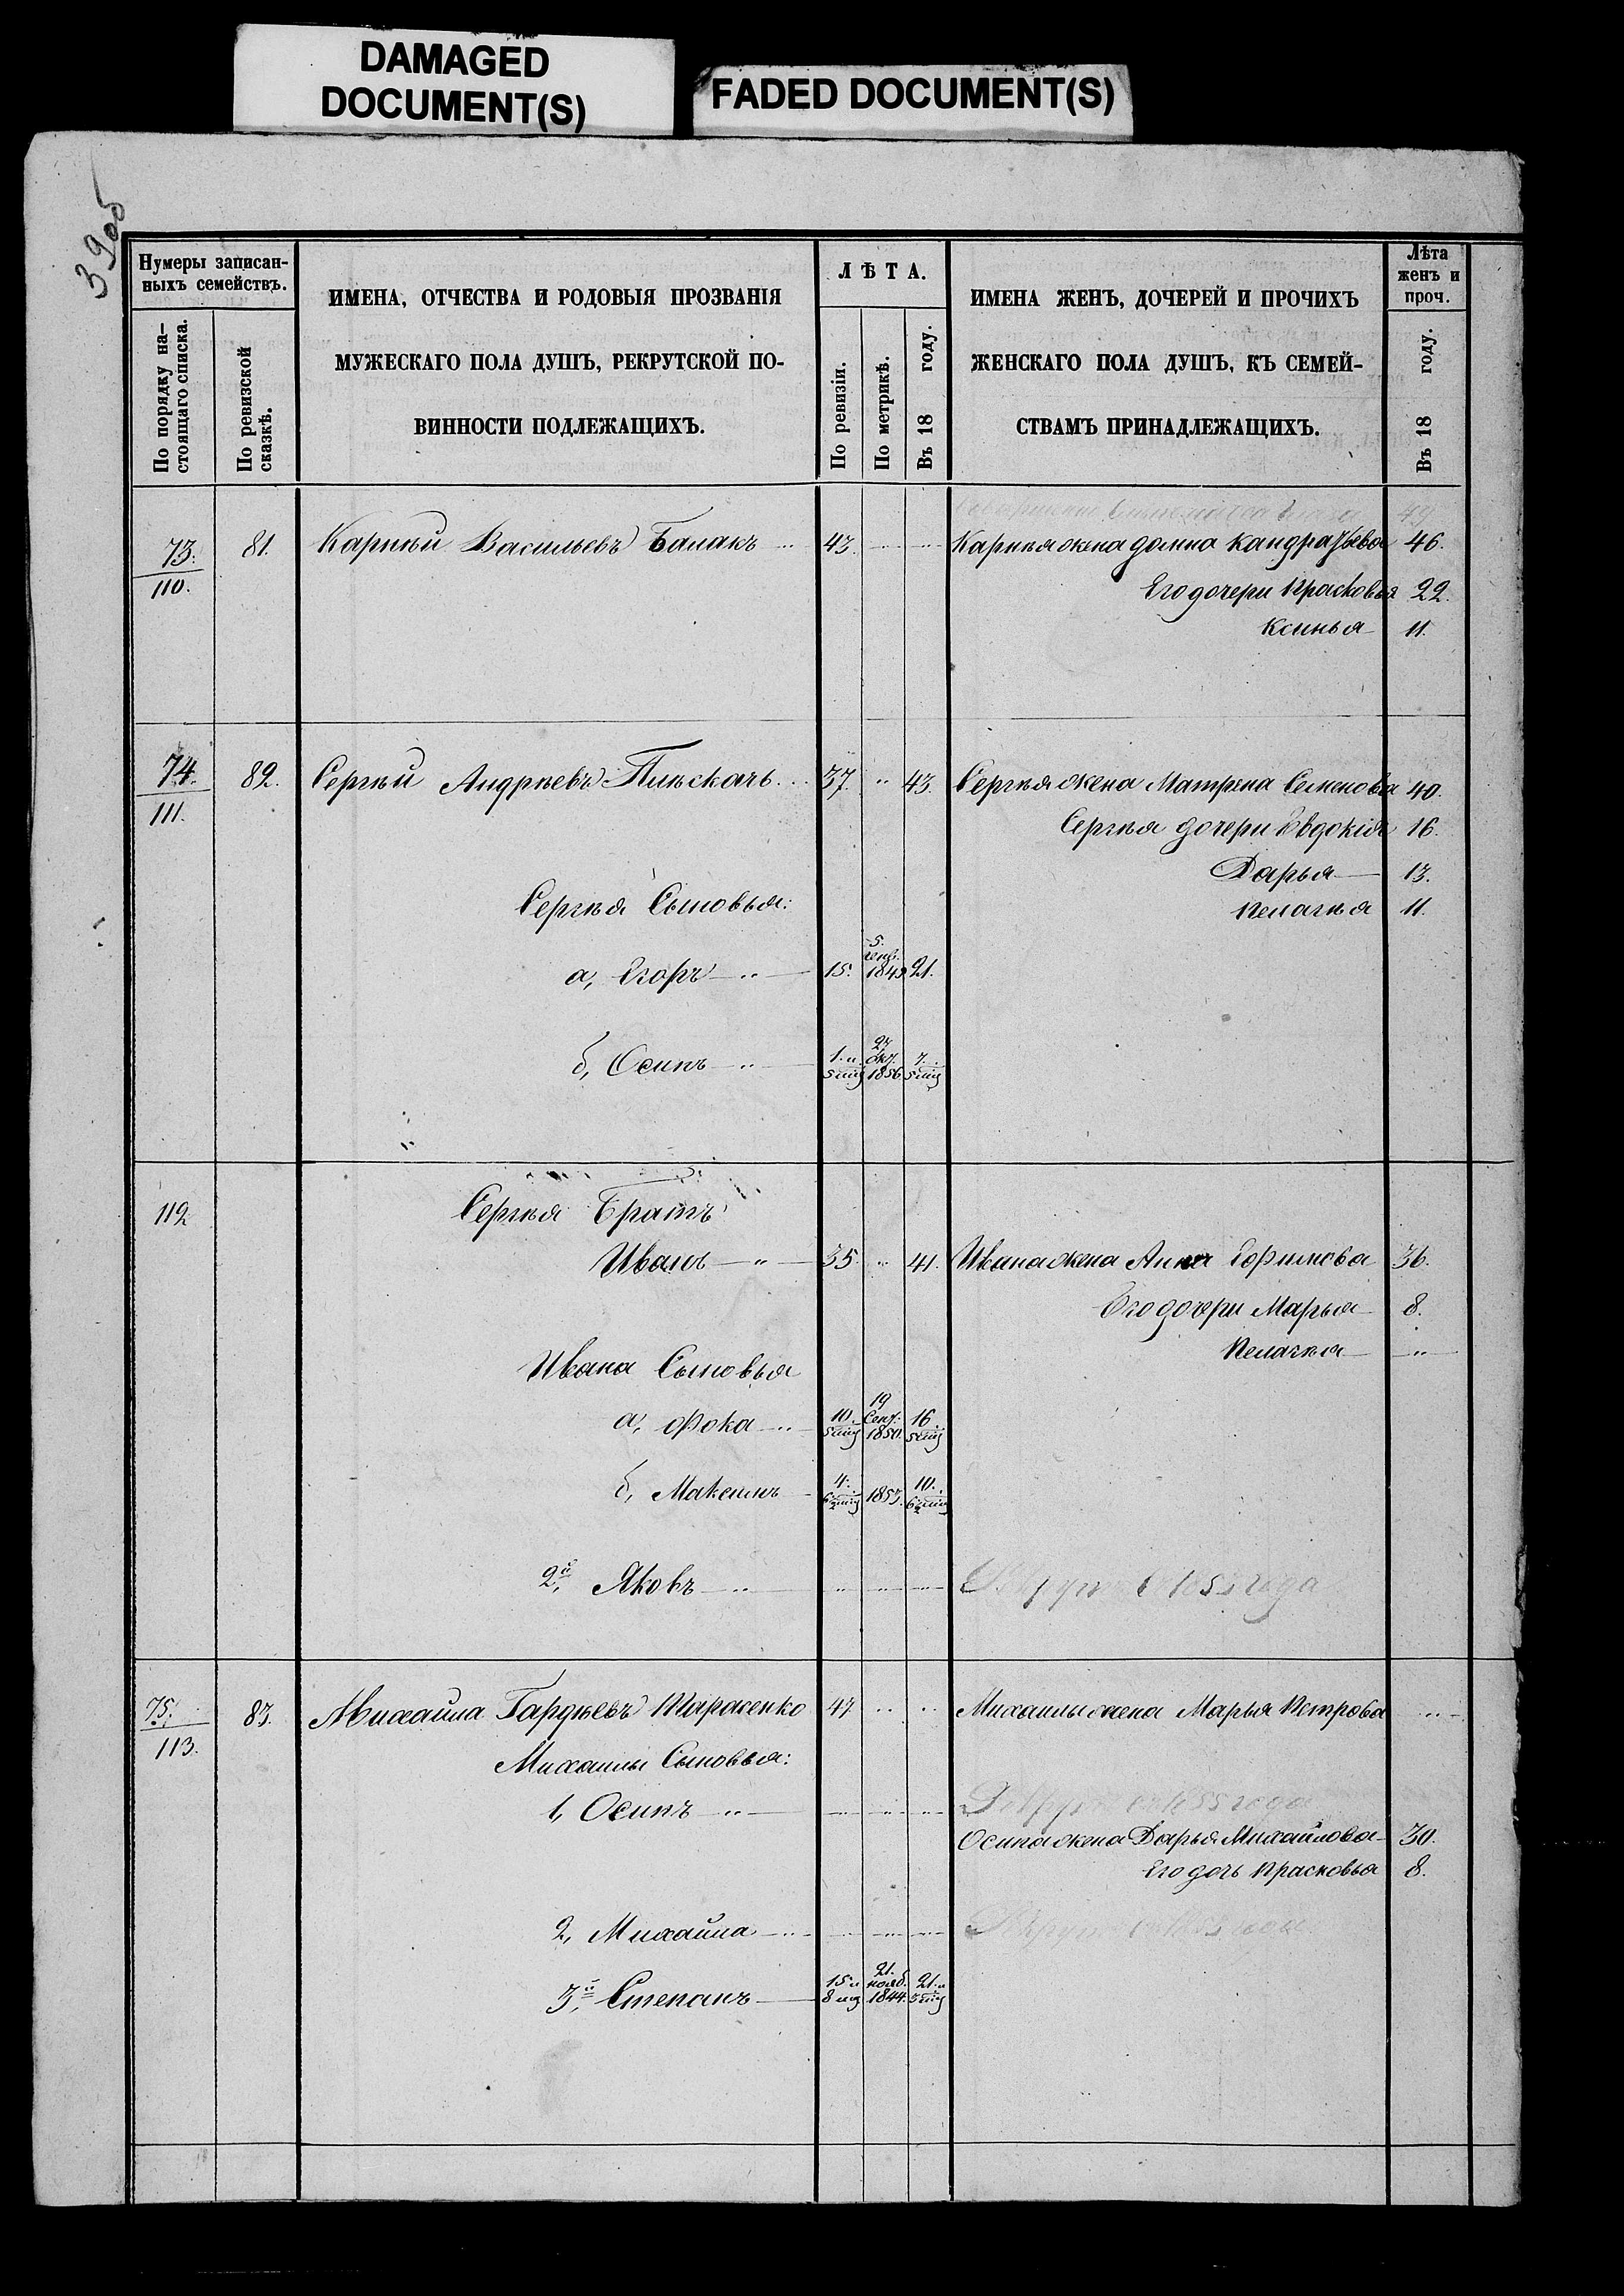 DAMAGED
DOCUMENT(S)
FADED DOCUMENT(S)
3905
Нумеры записан-
ныхъ семействъ.
По порядку на-
стоящаго списка.
По ревизской
сказкѣ.
ИМЕНА, ОТЧЕСТВА И РОДОВЫЯ ПРОЗВАНІЯ
МУЖЕСКАГО ПОЛА ДУШЪ, РЕКРУТСКОЙ ПО-
ВИННОСТИ ПОДЛЕЖАЩИХЪ.
ЛѢТА.
По ревизіи.
По метрикѣ.
Въ 18 году.
ИМЕНА ЖЕНЪ, ДОЧЕРЕЙ И ПРОЧИХЪ
ЖЕНСКАГО ПОЛА ДУШЪ, КЪ СЕМЕЙ-
СТВАМЪ ПРИНАДЛЕЖАЩИХЪ.
Лѣта
женъ и
проч.
Въ 18 году.
49
73. 81. Карнѣй Васильевъ Балакъ 43. Карнѣя жена Домна Кандратьева 46.
110. Его дочери Прасковья 22.
Ксинья 11.
74. 82. Сергѣй Андрѣевъ 37. " 43. Сергѣя жена Матрена Семенова 40.
111. Сергѣя дочери Евдокія 16.
Дарья 13.
Сергѣя Сыновья: Пелагѣя 11.
5.
а, Егоръ 15. 21.
27
б, Осипъ 1. и Окт. 7.
5 мц 1856 5 мц
112 Сергѣя Братъ
Иванъ 35. " 41. Ивана жена Анна Ефимова 36.
Его дочери Марья 8.
Пелагѣя "
Ивана Сыновья
19
а, Фока 10. Сент. 16
5 мц 1850. 5 мц
б, Максимъ 4. 1853. 10.
6½ мц 6½ мц
2й, Яковъ года
75. 83. Михайла Гардѣевъ Тарасенко 47 Михайлы жена Марья Петрова
113. Михайлы Сыновья:
1, Осипъ года
Осипа жена Дарья Михайлова 30.
Его дочь Прасковья 8.
2, Михайла
21.
3й, Степанъ 15 и нояб. 21. и
8 мц 1844. 5 мц